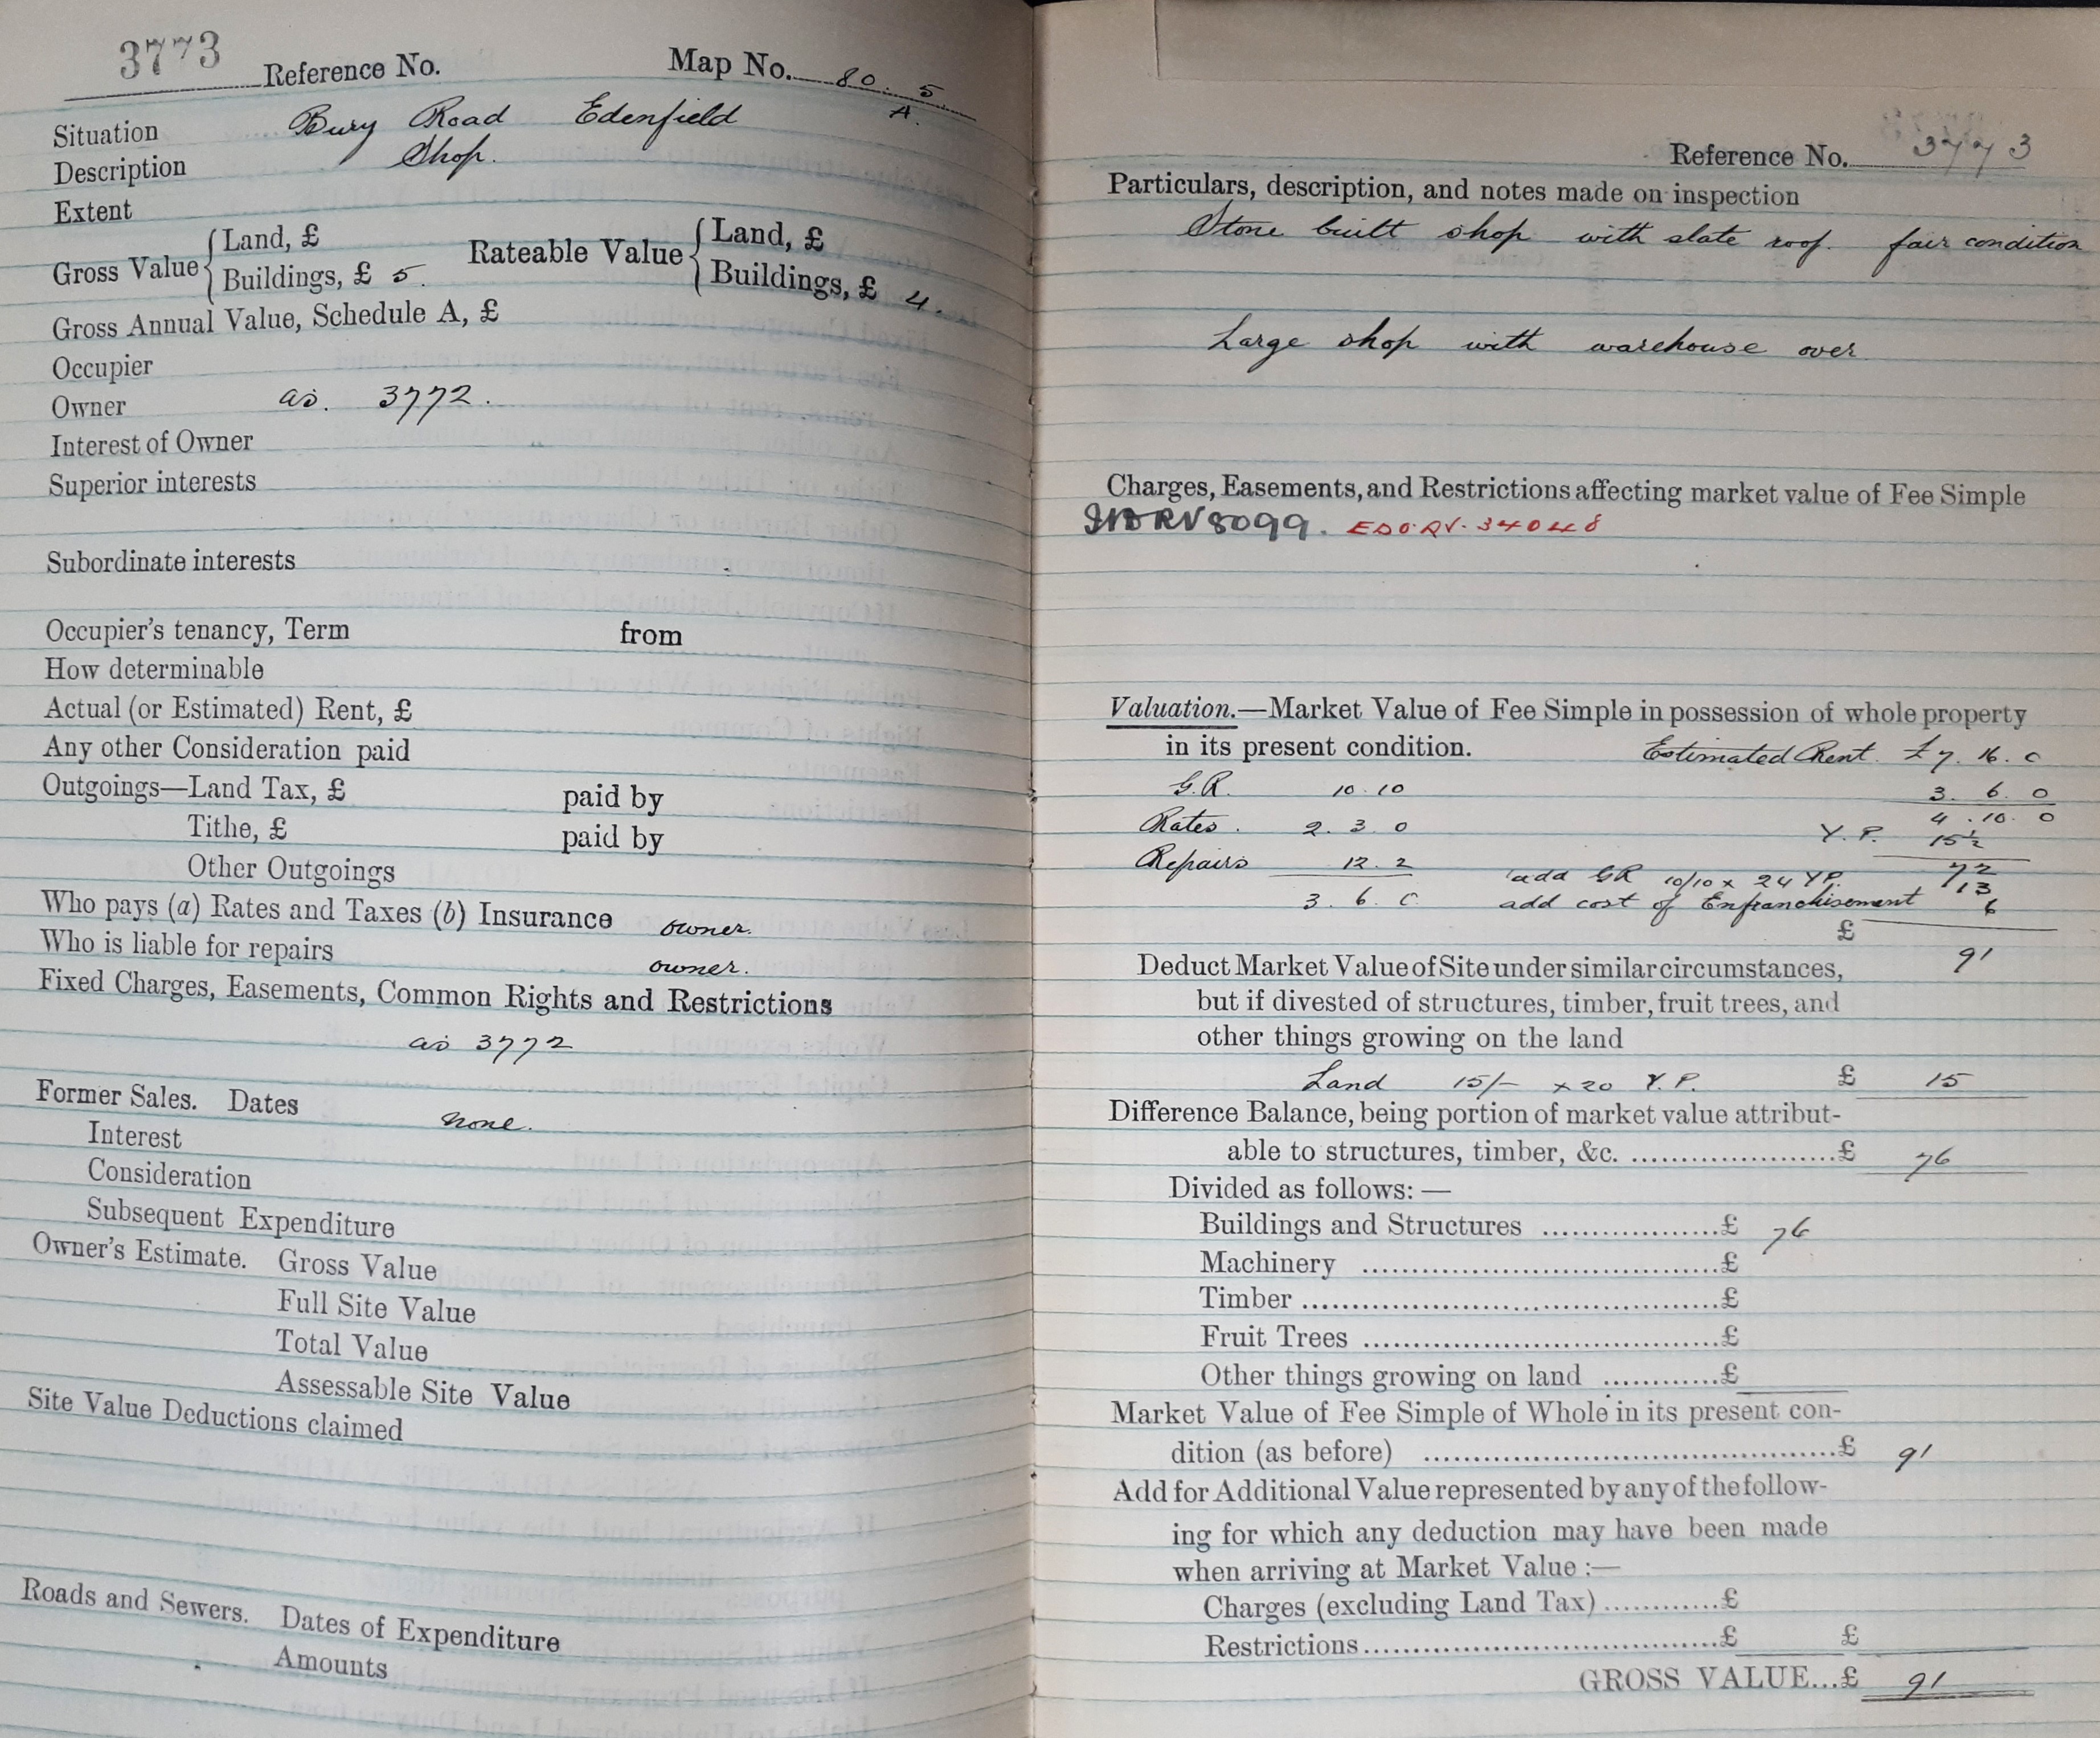 3773 Reference No. Map No. 80. 5.
A.
Situation Bury Road Edenfield
Description Shop.
Extent
Gross Value { Land, £
Buildings, £ 5. Rateable Value { Land, £
Buildings, £ 4.
Gross Annual Value, Schedule A, £
Occupier
Owner as. 3772.
Interest of Owner "
Superior interests
Subordinate interests
Occupier's tenancy, Term from
How determinable
Actual (or Estimated) Rent, £
Any other Consideration paid
Outgoings—Land Tax, £ paid by
Tithe, £ paid by
Other Outgoings
Who pays (a) Rates and Taxes (b) Insurance owner.
Who is liable for repairs owner.
Fixed Charges, Easements, Common Rights and Restrictions
as 3772
Former Sales. Dates none.
Interest
Consideration
Subsequent Expenditure
Owner's Estimate. Gross Value
Full Site Value
Total Value
Assessable Site Value
Site Value Deductions claimed
Roads and Sewers. Dates of Expenditure
Amounts
Reference No. 3773
Particulars, description, and notes made on inspection
Stone built shop with slate roof. fair condition
Large shop with warehouse over
Charges, Easements, and Restrictions affecting market value of Fee Simple
RV8099. EDO.RV.34048
Valuation.—Market Value of Fee Simple in possession of whole property
in its present condition. Estimated Rent £7. 16. 0
G.R. 10.10 3. 6. 0
4. 10. 0
Rates. 2. 3. 0 Y.P. 15½
Repairs 12. 2 72
add GR 10/10 x 24 Y.P. 13
3. 6. 0 add cost of Enfranchisement 6
£
91
Deduct Market Value of Site under similar circumstances,
but if divested of structures, timber, fruit trees, and
other things growing on the land
Land 15/- x 20 Y.P. £ 15
Difference Balance, being portion of market value attribut-
able to structures, timber, &c. ....................£ 76
Divided as follows: —
Buildings and Structures .................£ 76
Machinery ....................................£
Timber ..........................................£
Fruit Trees ....................................£
Other things growing on land ............£
Market Value of Fee Simple of Whole in its present con-
dition (as before) ..........................................£ 91
Add for Additional Value represented by any of the follow-
ing for which any deduction may have been made
when arriving at Market Value :—
Charges (excluding Land Tax) ............£
Restrictions ......................................£ £
GROSS VALUE...£ 91